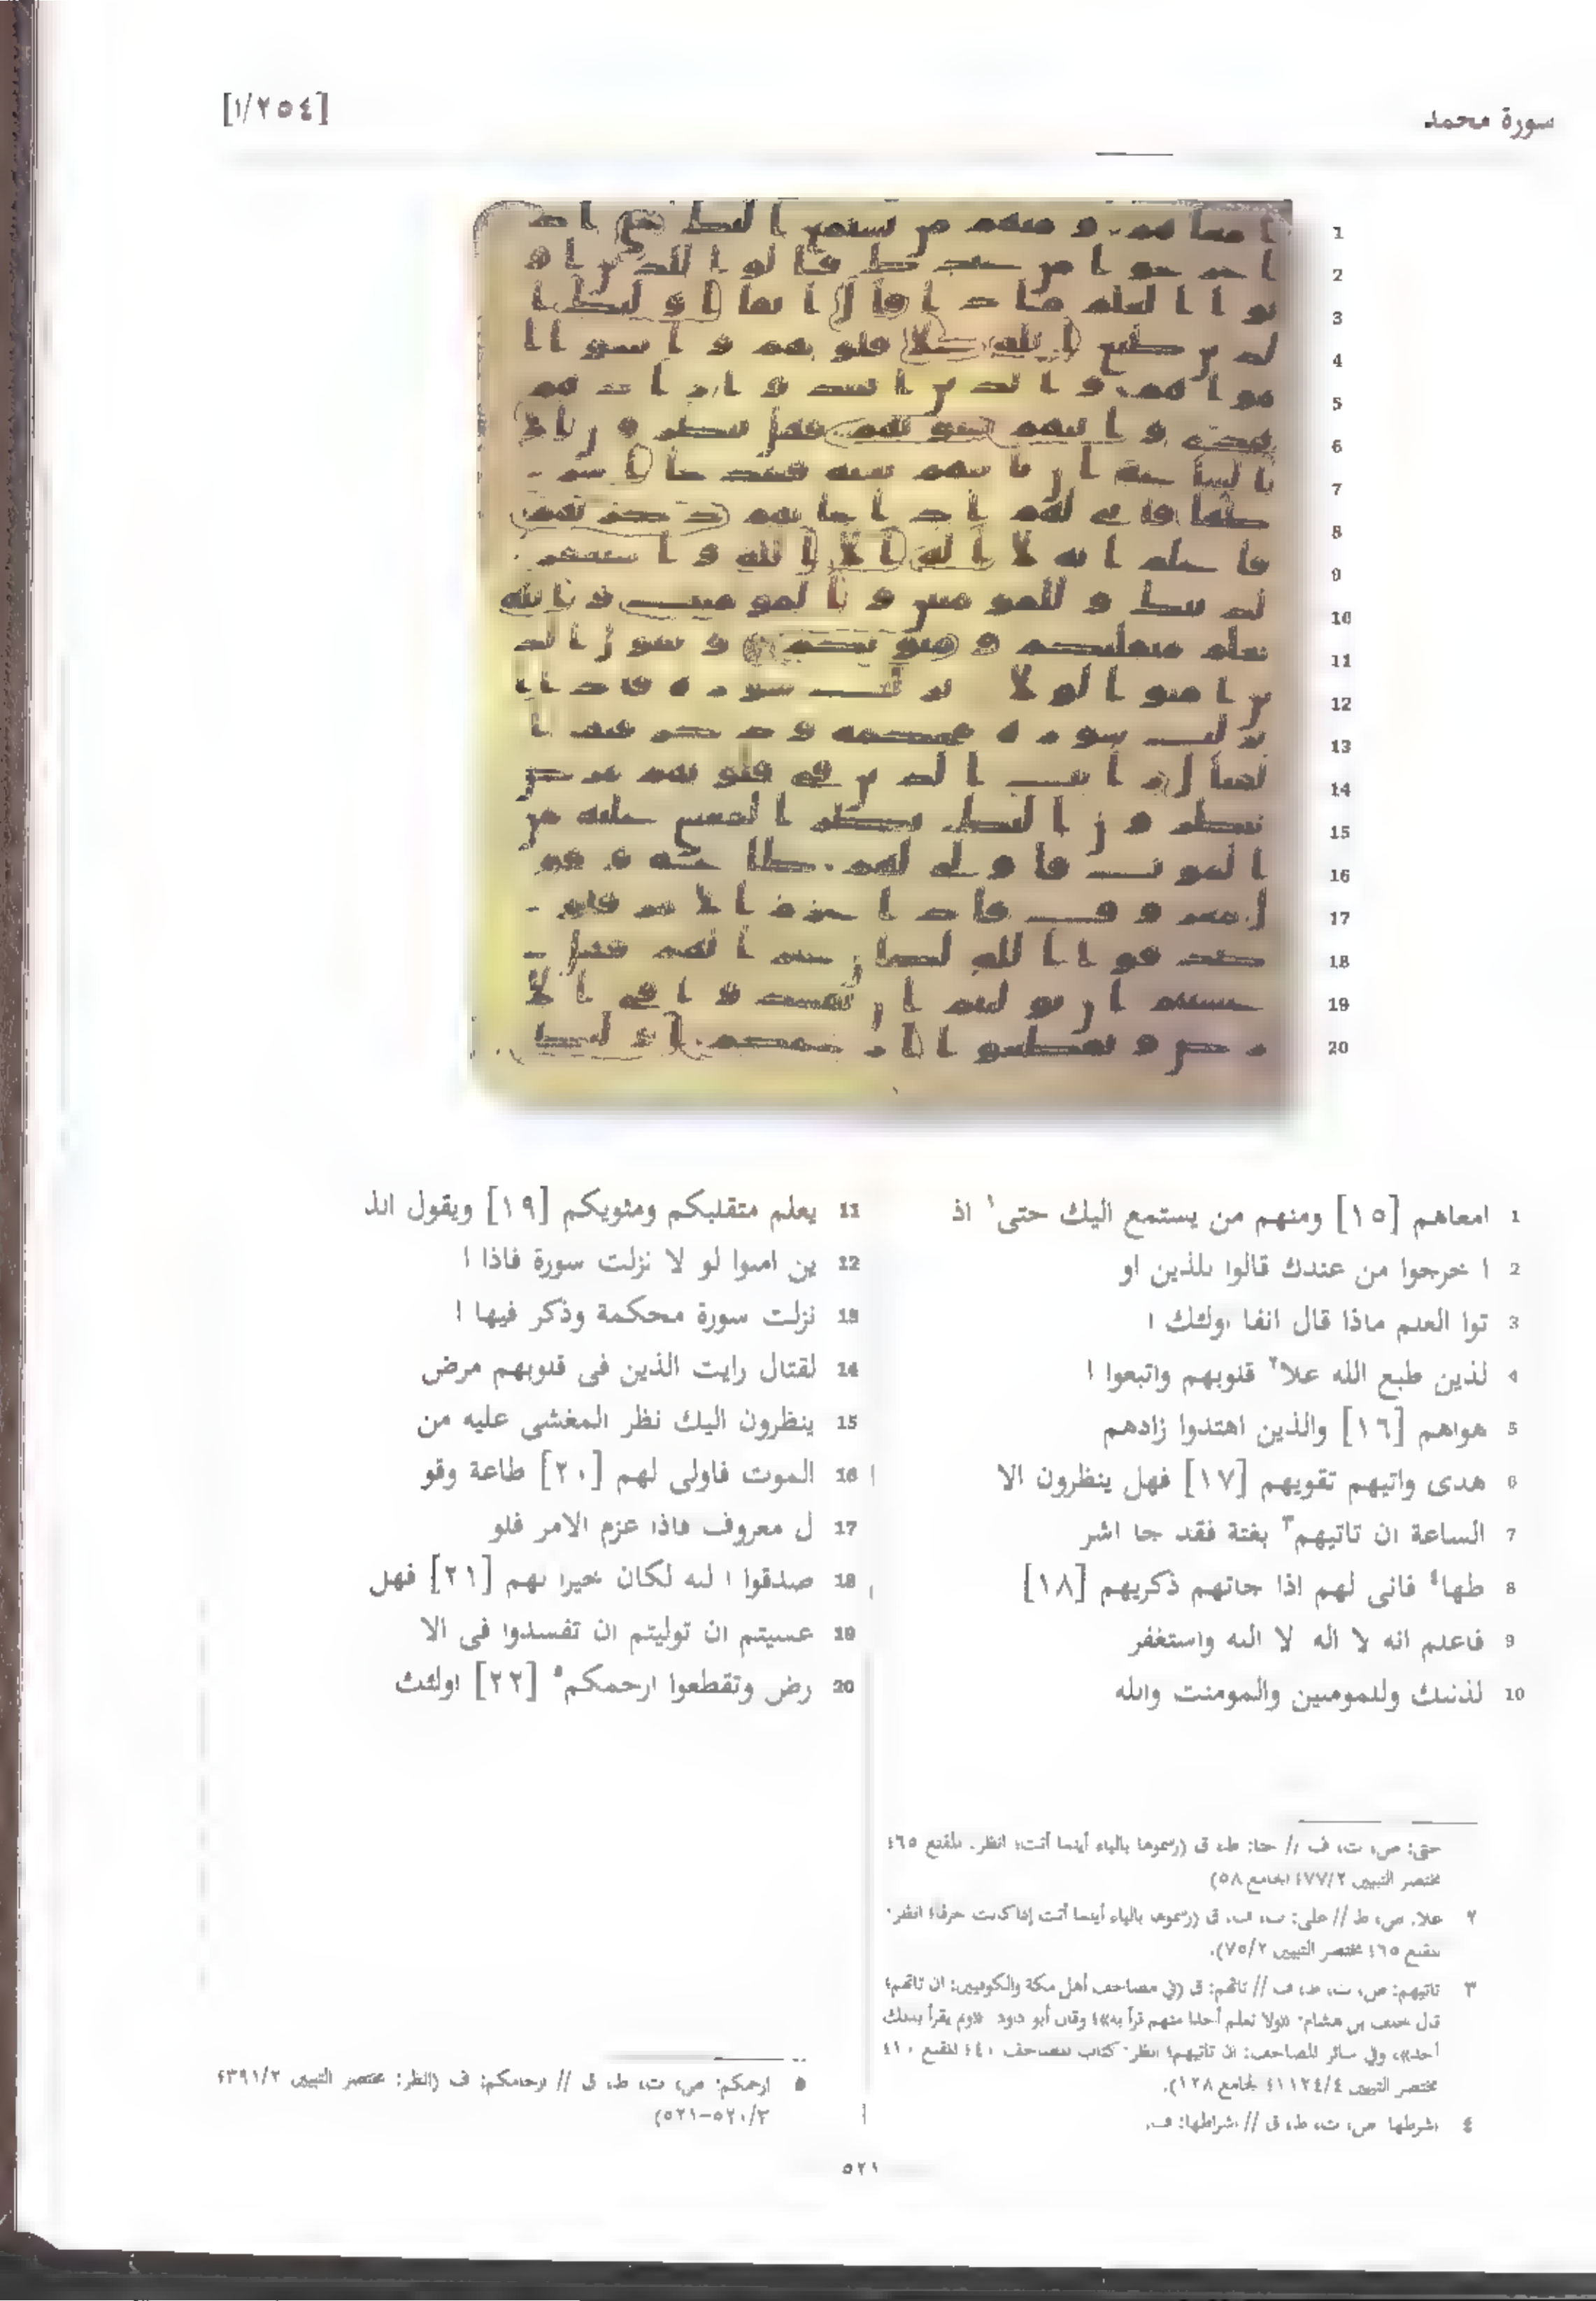 سورة محمد
[٢٥٤/١]
1 امعاهم [١٥] ومنهم من يستمع اليك حتى١ اذ
2 ا خرجوا من عندك قالوا للذين او
3 توا العلم ماذا قال انفا اولئك ا
4 لذين طبع الله علا٢ قلوبهم واتبعوا ا
5 هواهم [١٦] والذين اهتدوا زادهم
6 هدى واتيهم تقويهم [١٧] فهل ينظرون الا
7 الساعة ان تاتيهم٣ بغتة فقد جا اشر
8 طها٤ فانى لهم اذا جاتهم ذكريهم [١٨]
9 فاعلم انه لا اله لا الله واستغفر
10 لذنبك وللمومنين والمومنت والله
11 يعلم متقلبكم ومثويكم [١٩] ويقول الذ
12 ين امنوا لو لا نزلت سورة فاذا ا
13 نزلت سورة محكمة وذكر فيها ا
14 لقتال رايت الذين فى قلوبهم مرض
15 ينظرون اليك نظر المغشى عليه من
16 الموت فاولى لهم [٢٠] طاعة وقو
17 ل معروف فاذا عزم الامر فلو
18 صدقوا ا لله لكان خيرا لهم [٢١] فهل
19 عسيتم ان توليتم ان تفسدوا فى الا
20 رض وتقطعوا ارحمكم٥ [٢٢] اولئك
حتى: ص، ت، ف // حتا: ط، ق (رسموها بالياء أينما أتت؛ انظر: المقنع ٦٥؛
مختصر التبيين ٧٧/٢؛ الجامع ٥٨)
٢ علا: ص، ط // على: ت، ف، ق (رسموها بالياء أينما أتت إذا كانت حرفا؛ انظر:
المقنع ٦٥؛ مختصر التبيين ٧٥/٢).
٣ تاتيهم: ص، ت، ط، ف // تاتهم: ق (في مصاحف أهل مكة والكوفيين: ان تاتهم؛
قال خلف بن هشام: «ولا نعلم أحدا منهم قرأ به»؛ وقال أبو داود: «ولم يقرأ بذلك
أحد»، وفي سائر المصاحف: ان تاتيهم؛ انظر: كتاب المصاحف ٤٠؛ المقنع ١٠؛
مختصر التبيين ١١٢٤/٤؛ الجامع ١٢٨).
٤ اشرطها: ص، ت، ط، ق // اشراطها: ف.
٥ ارحمكم: ص، ت، ط، ق // ارحامكم: ف (انظر: مختصر التبيين ٣٩١/٢؛
٥٢٠/٣-٥٢١)
٥٢١